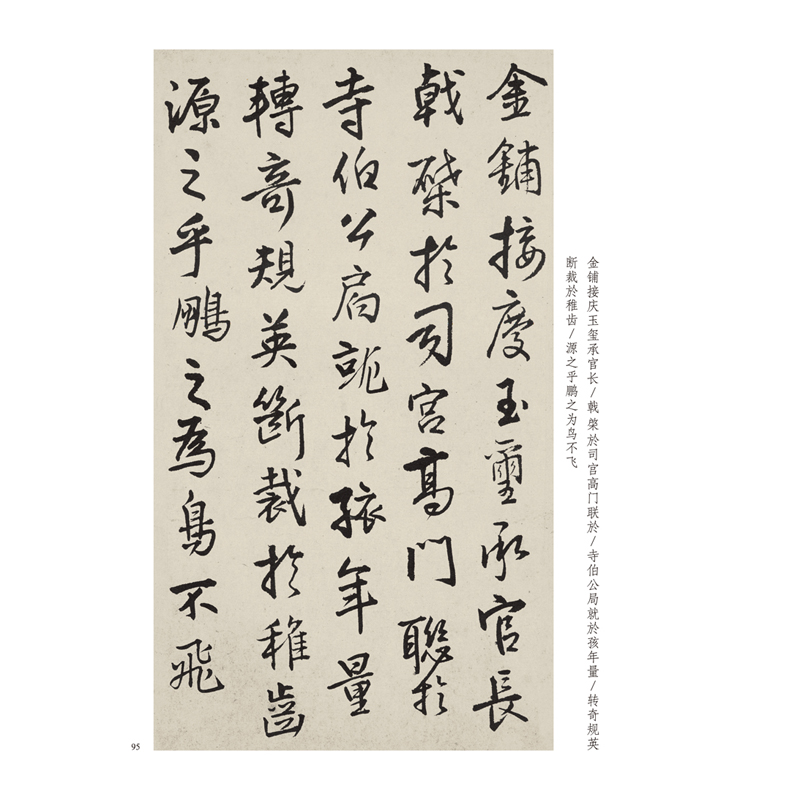 金铺接庆玉玺承官长/戟棨於司官高门联於/寺伯公局就於孩年量/转奇规英
断裁於稚齿/源之乎鹏之为鸟不飞
金鋪接慶玉璽承官長
戟棨於司宮高門聯於
寺伯公局就於孩年量
轉奇規英斷裁於稚齒
源之乎鵬之為鳥不飛
95